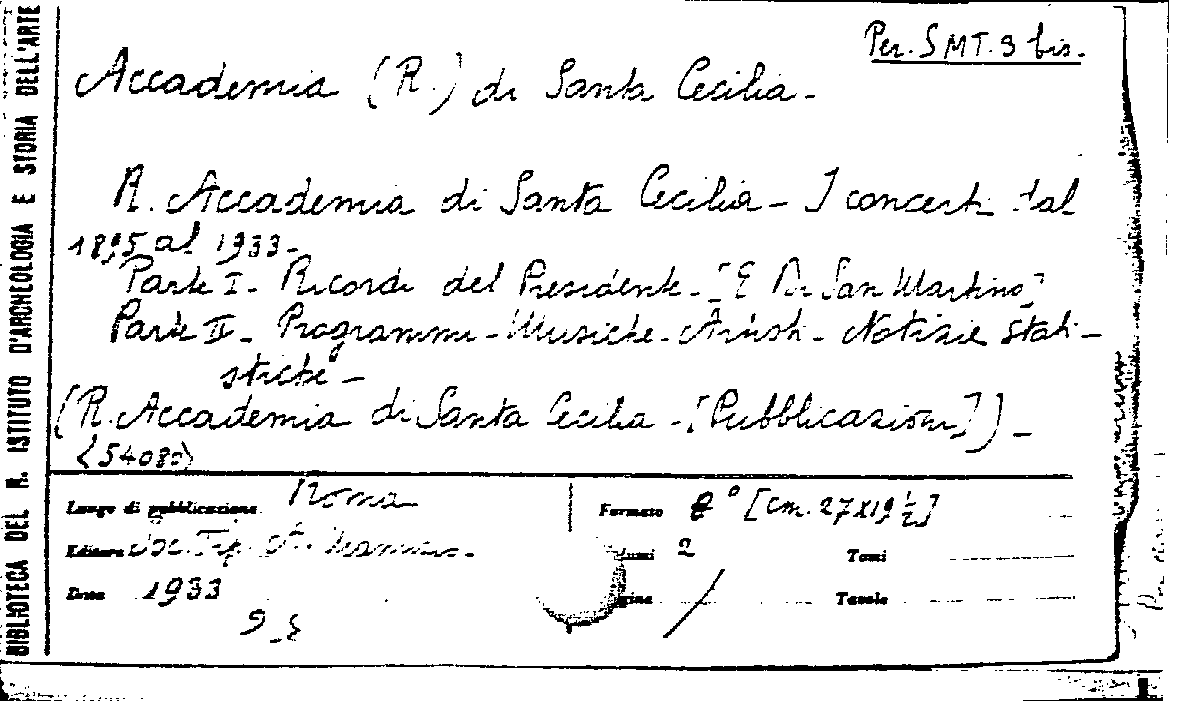 BIBLIOTECA DEL R. ISTITUTO D'ARCHEOLOGIA E STORIA DELL'ARTE
Per. SMT. 9 bis.
Accademia (R.) di Santa Cecilia -
R. Accademia di Santa Cecilia - I concerti dal
1895 al 1933 -
Parte I - Ricordi del Presidente - [E. Di San Martino]
Parte II - Programmi - Musiche - Artisti - Notizie stati-
stiche -
(R. Accademia di Santa Cecilia - [Pubblicazioni]) -
(54080)
Luogo di pubblicazione Roma
Formato 8° [cm. 27x19 ½]
Editore Soc. Tip. A. Manuzio -
2
Tomi
Data 1933
/
Tavole